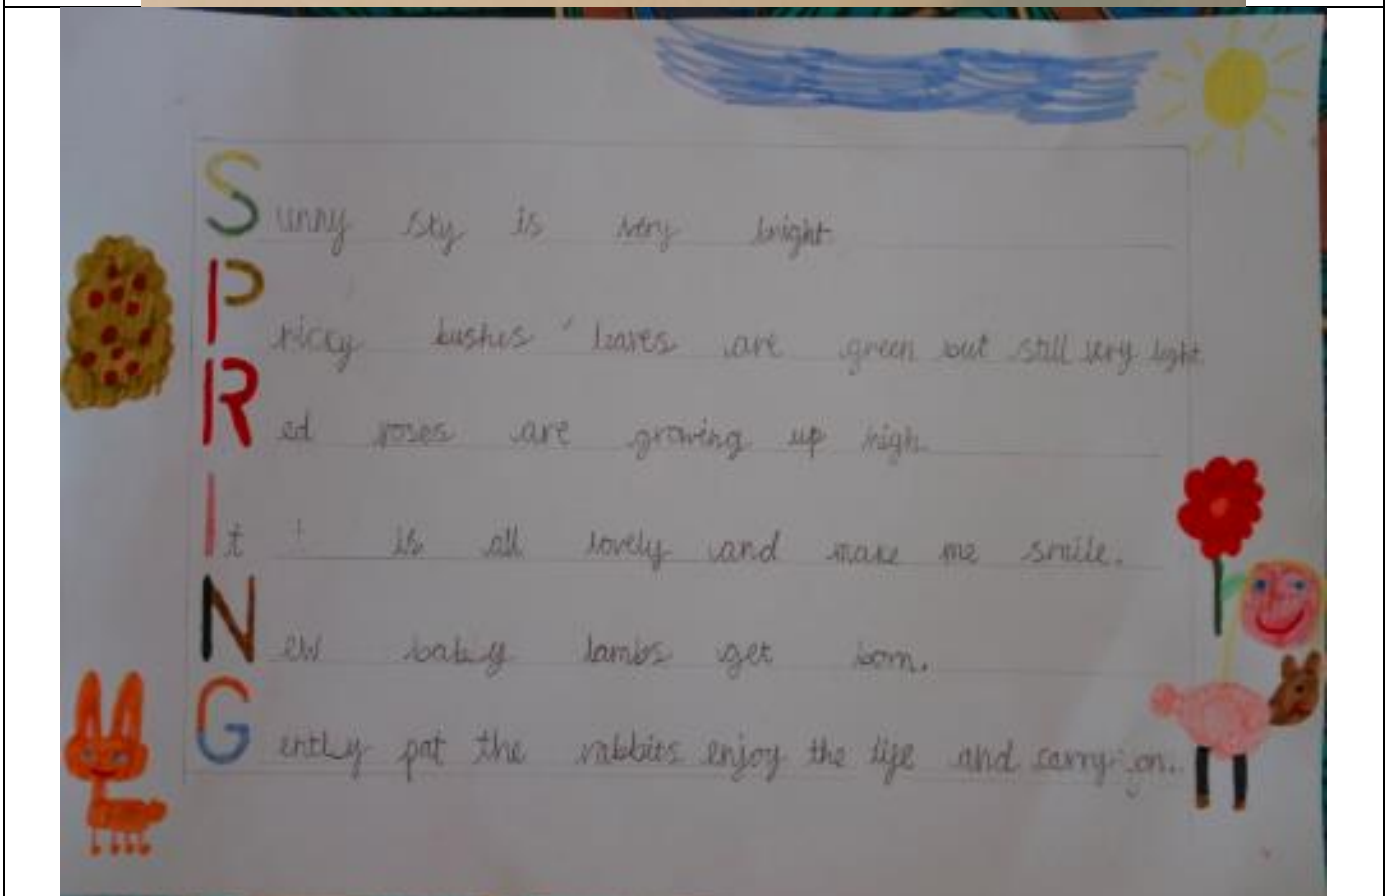 Sunny sky is very bright.
Pricky bushes' leaves are green but still very light
Red roses are growing up high.
It is all lovely and make me smile.
New baby lambs get born.
Gently pat the rabbits enjoy the life and carry on.